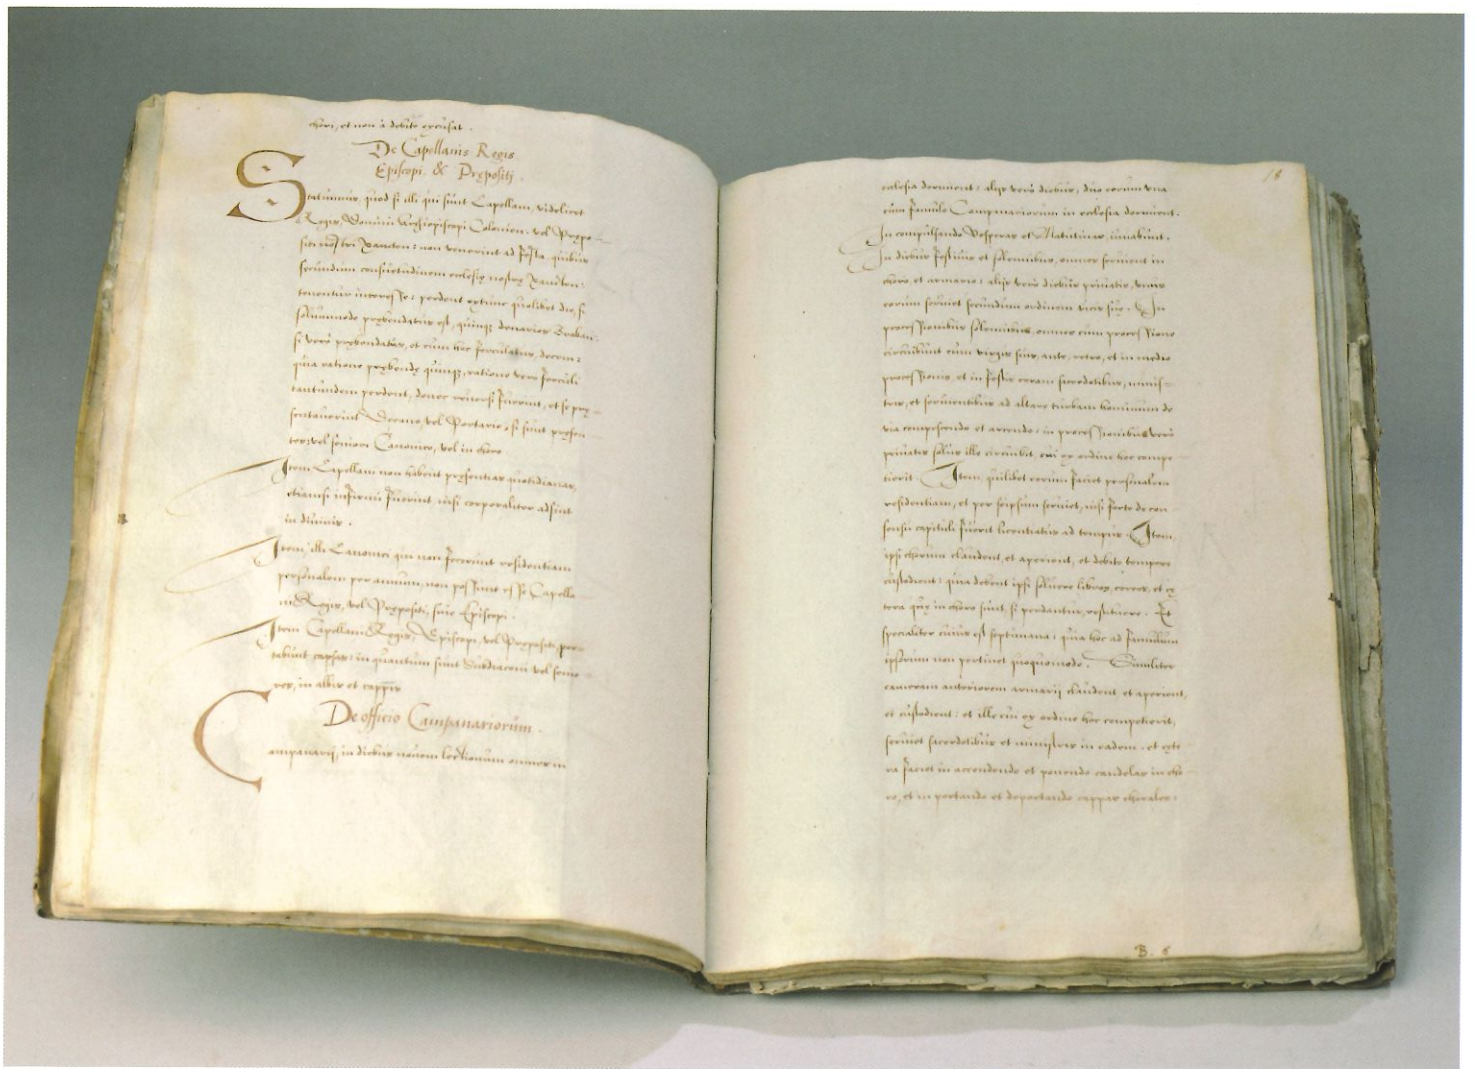 chori, et non à debito excusat.
De Capellanis Regis
Episcopi & Prępositi.
Statuimus, quod si illi qui sunt Capellani, videlicet
Regis, Domini Archiepiscopi Colonien: vel Prępo-
siti nostri Xancten: non venerint ad festa, quibus
secundum consuetudinem ecclesię nostrę Xancten:
tenentur interesse: perdent extunc quolibet die, si
solummodo prębendatus est, quinq; denarios Braban:
si verò prębendatus, et cum hoc ferculatus, decem:
qua ratione prębendę quinq;, ratione vero ferculi
tantundem perdent, donec reversi fuerint, et se prę-
sentaverint Decano, vel Portario, si sunt pręsen-
tes: vel seniori Canonico, vel in choro
Item Capellani non habent pręsentias quotidianas,
etiamsi infirmi fuerint, nisi corporaliter adsint
in divinis.
Item, illi Canonici qui non fecerint residentiam
personalem per annum, non possunt esse Capella-
ni Regis, vel Prępositi, sive Episcopi.
Item Capellani Regis, Episcopi, vel Prępositi, por-
tabunt capsas: in quantum sunt Subdiaconi vel senio-
res, in albis et cappis
De officio Campanariorum.
Campanarij, in diebus novem lectionum omnes in
18
ecclesia dormient: alijs verò diebus, duo eorum una
cum famulo Campanariorum in ecclesia dormient.
In compulsando Vesperas et Matutinas, iuvabunt.
In diebus festivis et solemnibus, omnes servient in
choro, et armario: alijs verò diebus privatis, unus
eorum serviet secundum ordinem vicis suę. In
processionibus solemnibus, omnes cum processione
circuibunt cum virgis suis, ante, retro, et in medio
processionis, et in festis ceram sacerdotibus, minis-
tris, et servientibus ad altare turbam hominum de
via compescendo et arcendo: in processionibus verò
privatis solus ille circuibit, cui ex ordine hoc compe-
tierit. Item, quilibet eorum faciet personalem
residentiam, et per seipsum serviet, nisi forte de con-
sensu capituli fuerit licentiatus ad tempus. Item
ipsi chorum claudent, et aperient, et debito tempore
custodient: quia debent ipsi solvere libros, ceras, et cę
tera quę in choro sunt, si perdantur, restituere. Et
specialiter cuius est septimana: quia hoc ad famulum
ipsorum non pertinet quoquomodo. Similiter
cameram anteriorem armarij claudent et aperient,
et custodient: et ille cui ex ordine hoc competierit,
serviet sacerdotibus et ministris in eadem. et cęte
ra faciet in accendendo et ponendo candelas in cho-
ro, et in portando et deportando cappas chorales:
B. 6